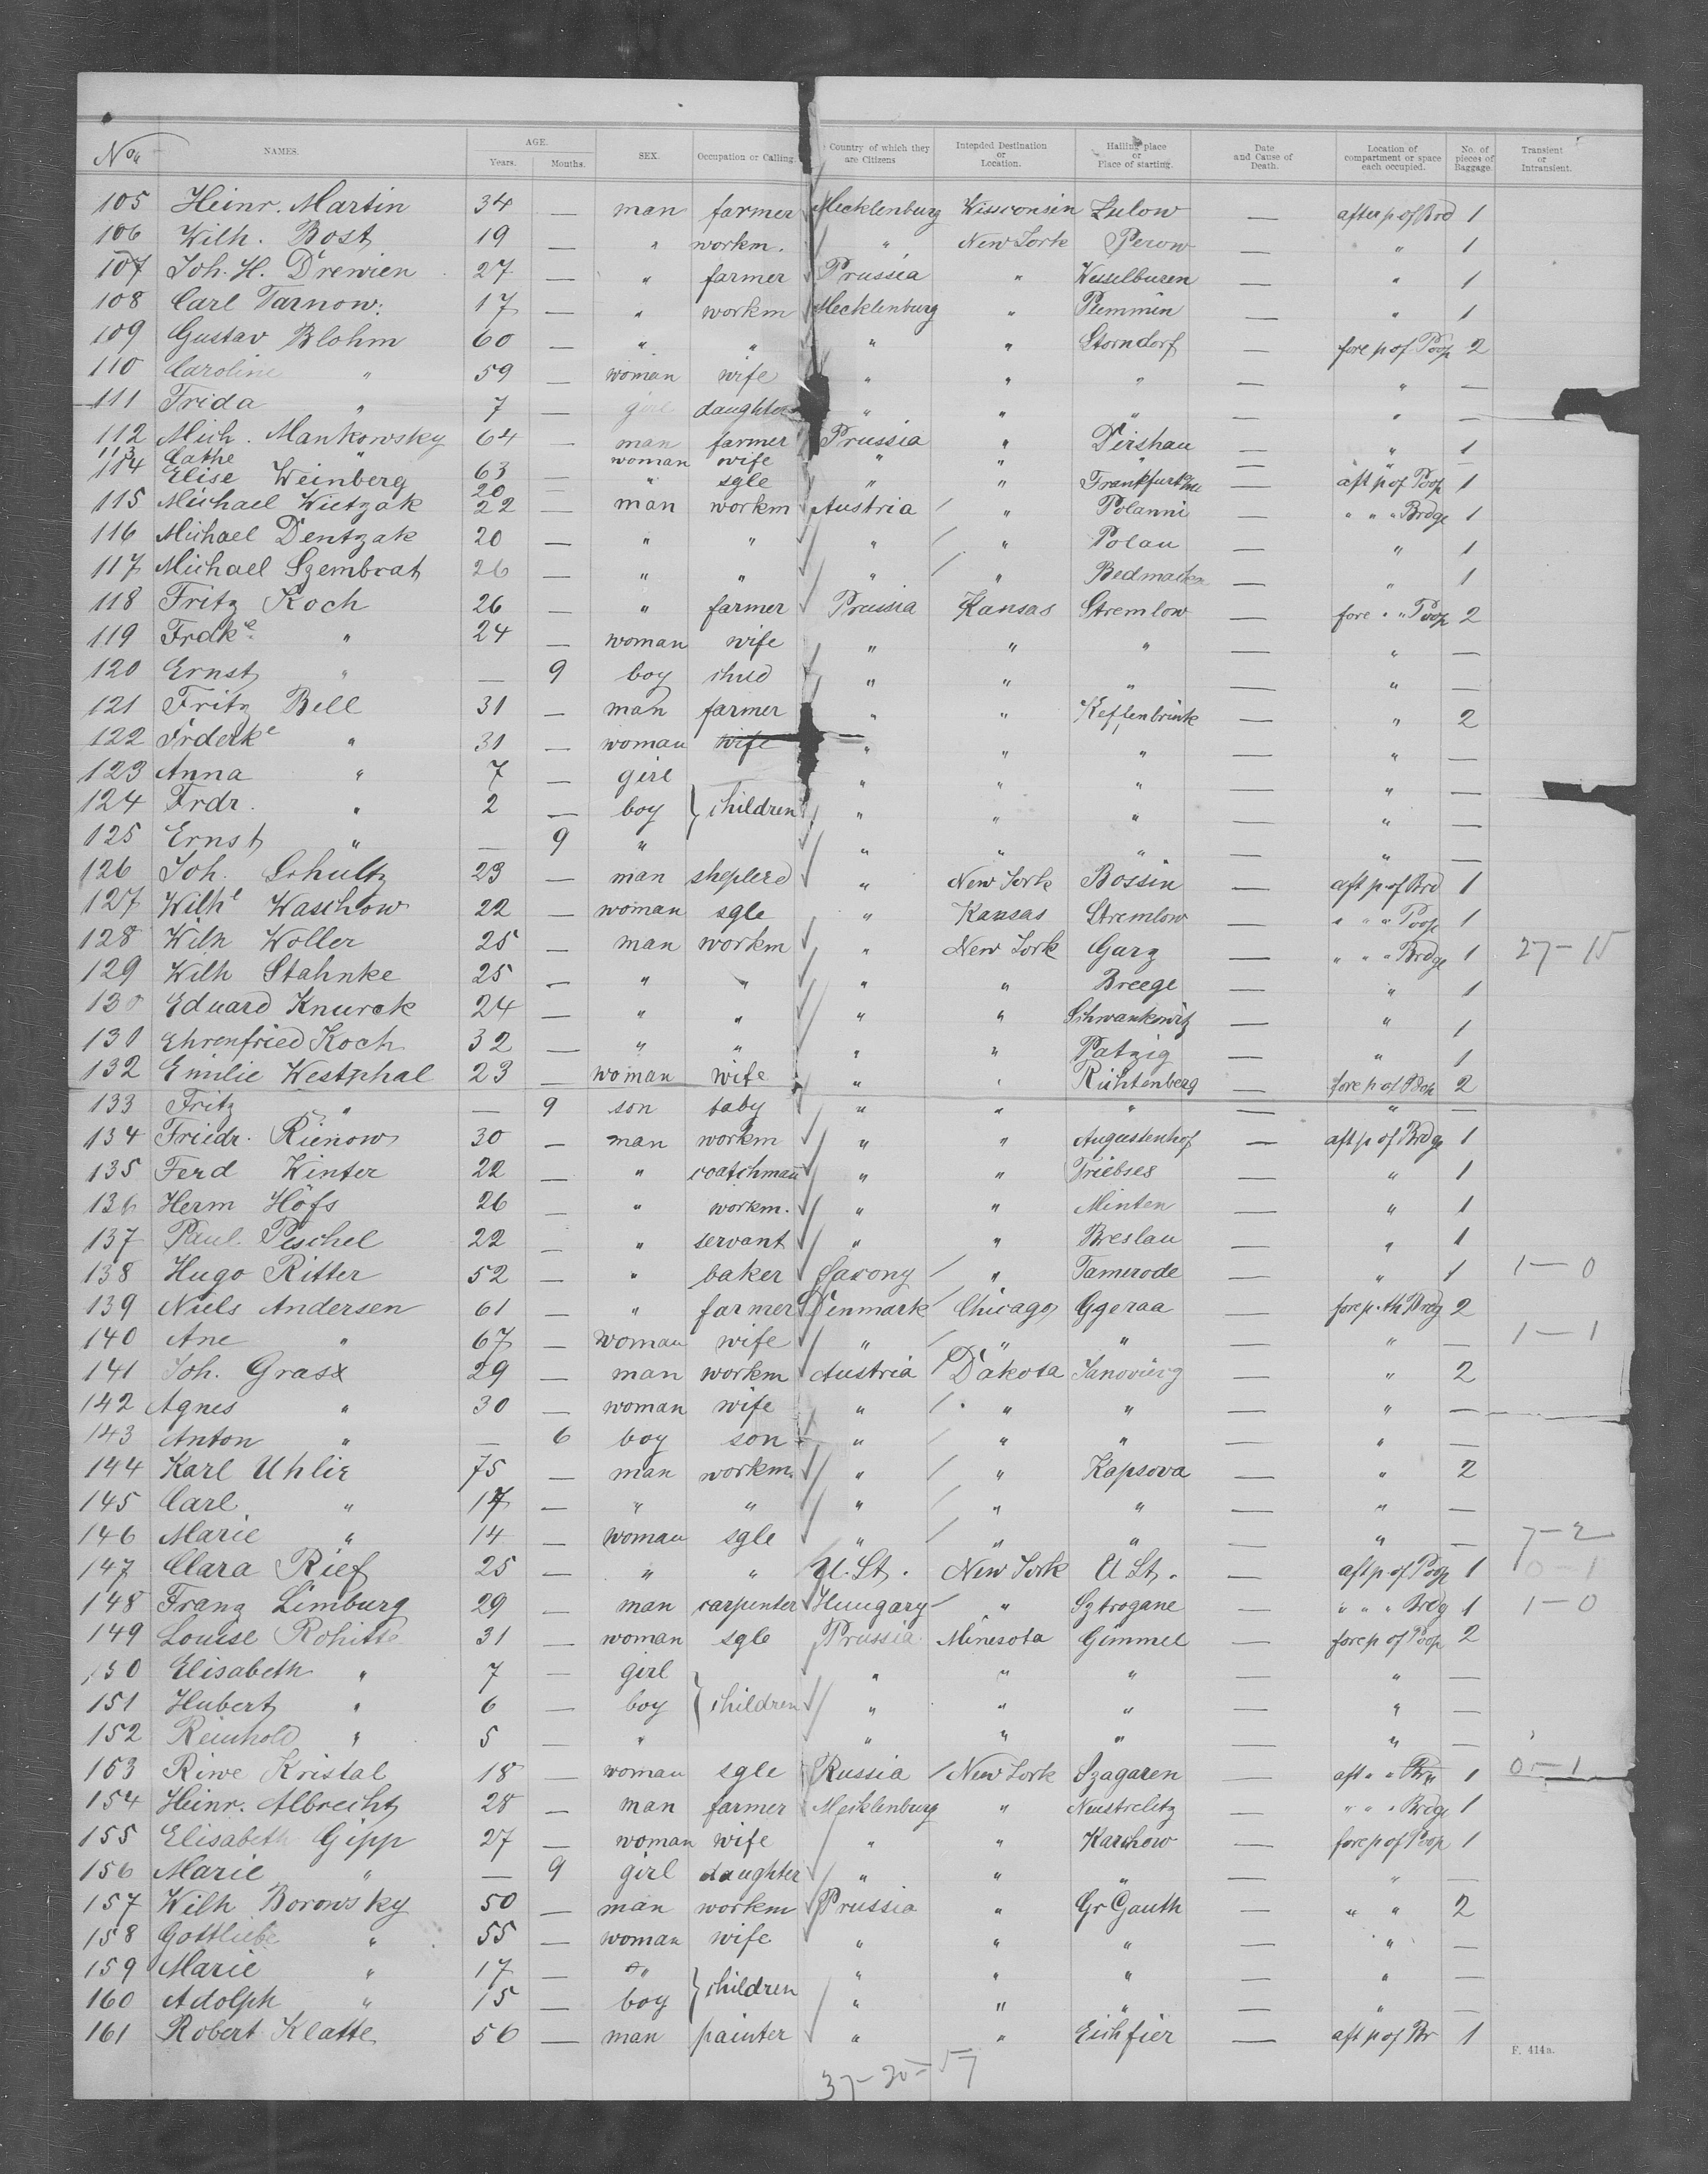 No. NAMES. AGE. Years. Months. SEX. Occupation or Calling. Country of which they are Citizens Intended Destination or Location. Hailing place or Place of starting. Date and Cause of Death. Location of compartment or space each occupied. No. of pieces of Baggage. Transient or Intransient.
105 Heinr. Martin 34 — man farmer Mecklenburg Wissconsin Lulow — after p of Brd 1
106 Wilh. Bost 19 — " workm. " New York Perow — " 1
107 Joh. H. Drewien 27 — " farmer Prussia " Wesselburen — " 1
108 Carl Tarnow. 17 — " workm Mecklenburg " Plemmin — " 1
109 Gustav Blohm 60 — " " " " Storndorf — fore p of Poop 2
110 Caroline " 59 — woman wife " " " — " —
111 Frida " 7 — girl daughter " " " — " —
112 Mich. Mankowsky 64 — man farmer Prussia " Dirshau — " 1
113 Cathe " 63 — woman wife " " " — " —
114 Elise Weinberg 20 — " sgle " " Frankfurt — aft p of Poop 1
115 Michael Wietzak 22 — man workm Austria " Polanni — " " " Brdge 1
116 Michael Dentzak 20 — " " " " Polau — " 1
117 Michael Szembrat 26 — " " " " — " 1
118 Fritz Koch 26 — " farmer Prussia Kansas Stremlow — fore " " Poop 2
119 Frdke " 24 — woman wife " " " — " —
120 Ernst " — 9 boy child " " " — " —
121 Fritz Bell 31 — man farmer " " Keffenbrink — " 2
122 Frderke " 31 — woman wife " " " — " —
123 Anna " 7 — girl " " " — " —
124 Frdr. " 2 — boy } children " " " — " —
125 Ernst " — 9 " " " " — " —
126 Joh. Schultz 23 — man sheplerd " New York Bossin — aft p of Brd 1
127 Wilhe Waschow 22 — woman sgle " Kansas Stremlow — " " " Poop 1
128 Wilh Woller 25 — man workm " New York Garz — " " " Brdge 1 27 — 15
129 Wilh Stahnke 25 — " " " " Breege — " 1
130 Eduard Knurek 24 — " " " " Schwankowitz — " 1
131 Ehrenfried Koch 32 — " " " " Patzig — " 1
132 Emilie Westphal 23 — woman wife " " Richtenberg — fore p of Poop 2
133 Fritz " — 9 son baby " " " — " —
134 Friedr. Rienow 30 — man workm " " Augustenhof — aft p of Brdg 1
135 Ferd Winter 22 — " coatchman " " Triebses — " 1
136 Herm Höfs 26 — " workm. " " Minten — " 1
137 Paul Peschel 22 — " servant " " Breslau — " 1
138 Hugo Ritter 52 — " baker Saxony " Tamerode — " 1 1 — 0
139 Niels Andersen 61 — " farmer Denmark Chicago Ggeraa — fore p. th Brdg 2
140 Ane " 67 — woman wife " " " — " — 1 — 1
141 Joh. Grasx 29 — man workm Austria Dakota — " 2
142 Agnes " 30 — woman wife " " " — " —
143 Anton " — 6 boy son " " " — " —
144 Karl Uhlir 75 — man workm. " " Kapsova — " 2
145 Carl " 17 — " " " " " — " —
146 Marie " 14 — woman sgle " " " — " — 7 — 2
147 Clara Rief 25 — " " U. St. New York U St. — aft p of Poop 1 0 — 1
148 Franz Limburg 29 — man carpenter Hungary " Sztrogane — " " " Brdg 1 1 — 0
149 Louise Rohitte 31 — woman sgle Prussia Minesota Gimmel — fore p of Poop 2
150 Elisabeth " 7 — girl " " " — " —
151 Hubert " 6 — boy } children " " " — " —
152 Reinhold " 5 — " " " " — " —
153 Riwe Kristal 18 — woman sgle Russia New York Szagaren — aft " " 1 0 — 1
154 Heinr. Albrecht 28 — man farmer Mecklenburg " Neustrelitz — " " " Brdge 1
155 Elisabeth Gipp 27 — woman wife " " Karchow — fore p of Poop 1
156 Marie " — 9 girl daughter " " " — " —
157 Wilh Borowsky 50 — man workm Prussia " Gr Gauth — " " 2
158 Gottliebe " 55 — woman wife " " " — " —
159 Marie " 17 — " " " " — " —
160 Adolph " 15 — boy } children " " " — " —
161 Robert Klatte 56 — man painter " " Eichfier — aft p of Br 1
F. 414a.
37 — 20 — 57